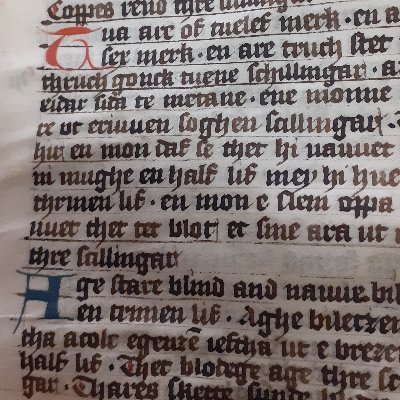 Coppes rend thre
Tua are of tuelef merk · en a
sex merk · en are truch stet
thruch gonck tuene schillingar · a
eider sida te metane · ene monne
er ut criuuen soghen scillingar ·
hir en mon daf se thet hi nauuet
ni mughe en half lif mey hi hue
thrnien lif · en mon e slein oppa
uuet thet ter blot et sine ara ut
thre scillingar
Age stare blind and nauue bil
en trimen lif · Aghe bilerzen
tha acolc egenzē iestha ut e brezen
half lif · Thet blotege age thre sc
gar · Thares skette